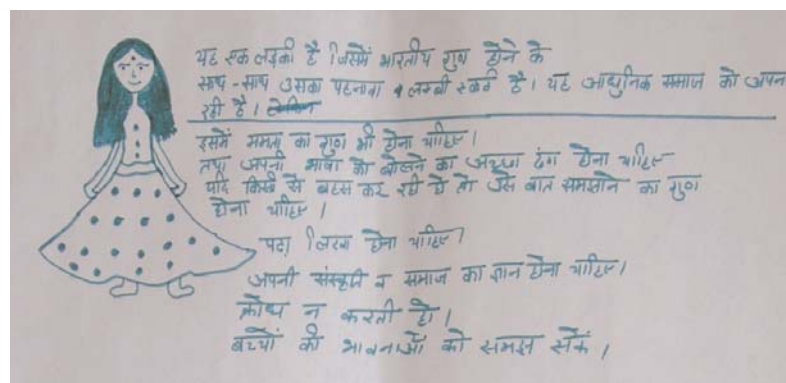 यह एक लड़की है जिसमें भारतीय गुण होने के
साथ-साथ उसका पहनावा व लम्बी स्कर्ट है। यह आधुनिक समाज को अपना
रही है।
इसमें ममता का गुण भी होना चाहिए।
तथा अपनी भाषा को बोलने का अच्छा ढंग होना चाहिए
यदि किसी से बहस कर रही हो तो उसे बात समझाने का गुण
होना चाहिए।
पढ़ा लिखा होना चाहिए।
अपनी संस्कृति व समाज का ज्ञान होना चाहिए।
क्रोध न करती हो।
बच्चों की भावनाओं को समझ सकें।